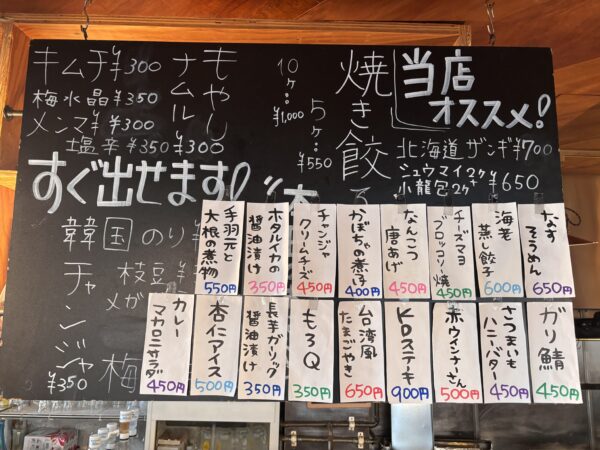 当店
オススメ!
北海道ザンギ ¥700
シュウマイ2ケ
小龍包2ケ
¥650
焼き餃子
10ヶ:
¥1,000
5ヶ:
¥550
もやし
ナムル
¥300
キムチ ¥300
梅水晶 ¥350
メンマ ¥300
塩辛 ¥350
すぐ出せます!
韓国のり ¥
チャンジャ
¥350
枝豆
メガ
梅
なす
そうめん
650円
海老
蒸し餃子
600円
チーズマヨ
ブロッコリー焼
450円
なんこつ
唐あげ
450円
かぼちゃの煮付
400円
チャンジャ
クリームチーズ
450円
ホタルイカの
醤油漬け
350円
手羽元と
大根の煮物
550円
ガリ鯖
450円
さつまいも
ハニーバター
450円
赤ウインナーさん
500円
KDステーキ
900円
台湾風
たまごやき
650円
もろQ
350円
長芋ガリック
醤油漬け
350円
杏仁アイス
500円
カレー
マカロニサラダ
450円